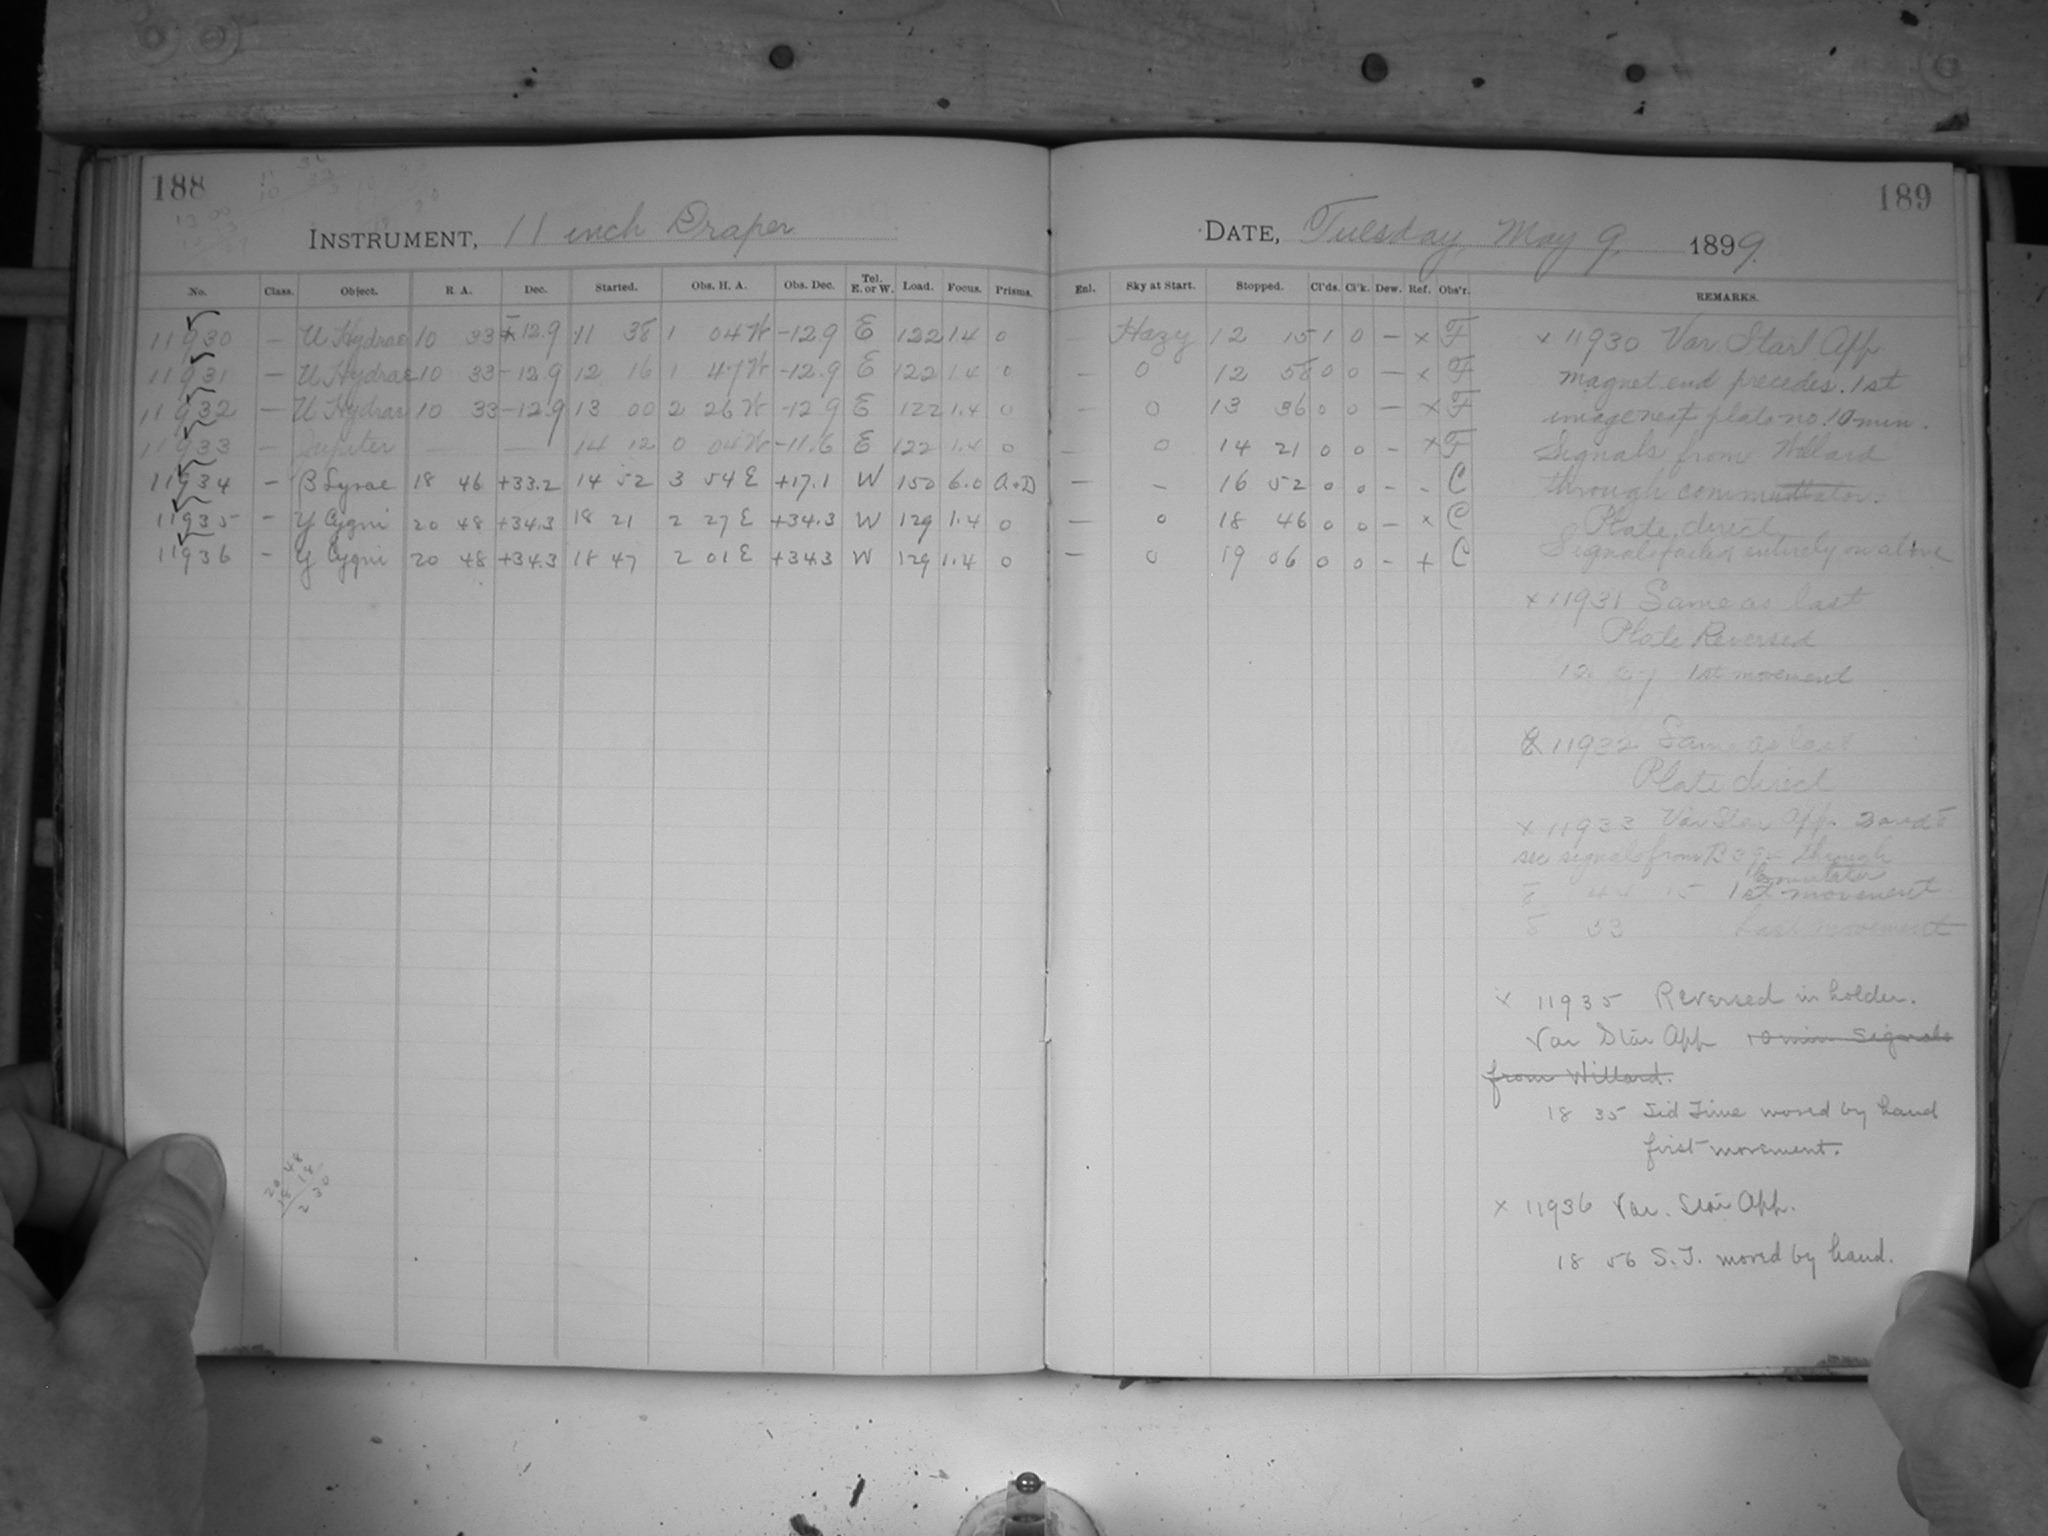 188
INSTRUMENT, 11 inch Draper
No. Class. Object. R. A. Dec. Started. Obs. H. A. Obs. Dec. Tel. E. or W. Load. Focus. Prisms.
11930 — U Hydrae 10 33 -12.9 11 38 1 04 W -12.9 E 122 1.4 0
11931 — U Hydrae 10 33 -12.9 12 16 1 47 W -12.9 E 122 1.4 0
11932 — U Hydrae 10 33 -12.9 13 00 2 26 W -12.9 E 122 1.4 0
11933 — Jupiter — — 14 12 0 04 W -11.6 E 122 1.4 0
11934 — β Lyrae 18 46 +33.2 14 52 3 54 E +17.1 W 150 6.0 a+D
11935 — Y Cygni 20 48 +34.3 18 21 2 27 E +34.3 W 129 1.4 0
11936 — Y Cygni 20 48 +34.3 18 47 2 01 E +34.3 W 129 1.4 0
20 48
18 18
2 30
189
DATE, Tuesday, May 9, 1899.
Enl. Sky at Start. Stopped. Cl'ds. Cl'k. Dew. Ref. Obs'r. REMARKS.
— Hazy 12 15 1 0 — x F
— 0 12 58 0 0 — x F
— 0 13 36 0 0 — x F
— 0 14 21 0 0 - x F
— - 16 52 0 0 - - C
— 0 18 46 0 0 — x C
— 0 19 06 0 0 - + C
x 11930 Var Star App
magnet end precedes. 1st
image next plate no. 10 min.
Signals from Willard
through commutator.
Plate direct
Signals failed entirely on above
x 11931 Same as last
Plate Reversed
12 27 1st movement
x 11932 Same as last
Plate direct
x 11933 Var Star App. 3 and
sec signals from through
commutator
1st movement
33 Last movement
x 11935 Reversed in holder.
Var Star App 10 min Signals
from Willard.
18 35 Sid Time moved by hand
first movement.
x 11936 Var. Star App.
18 56 S.T. moved by hand.